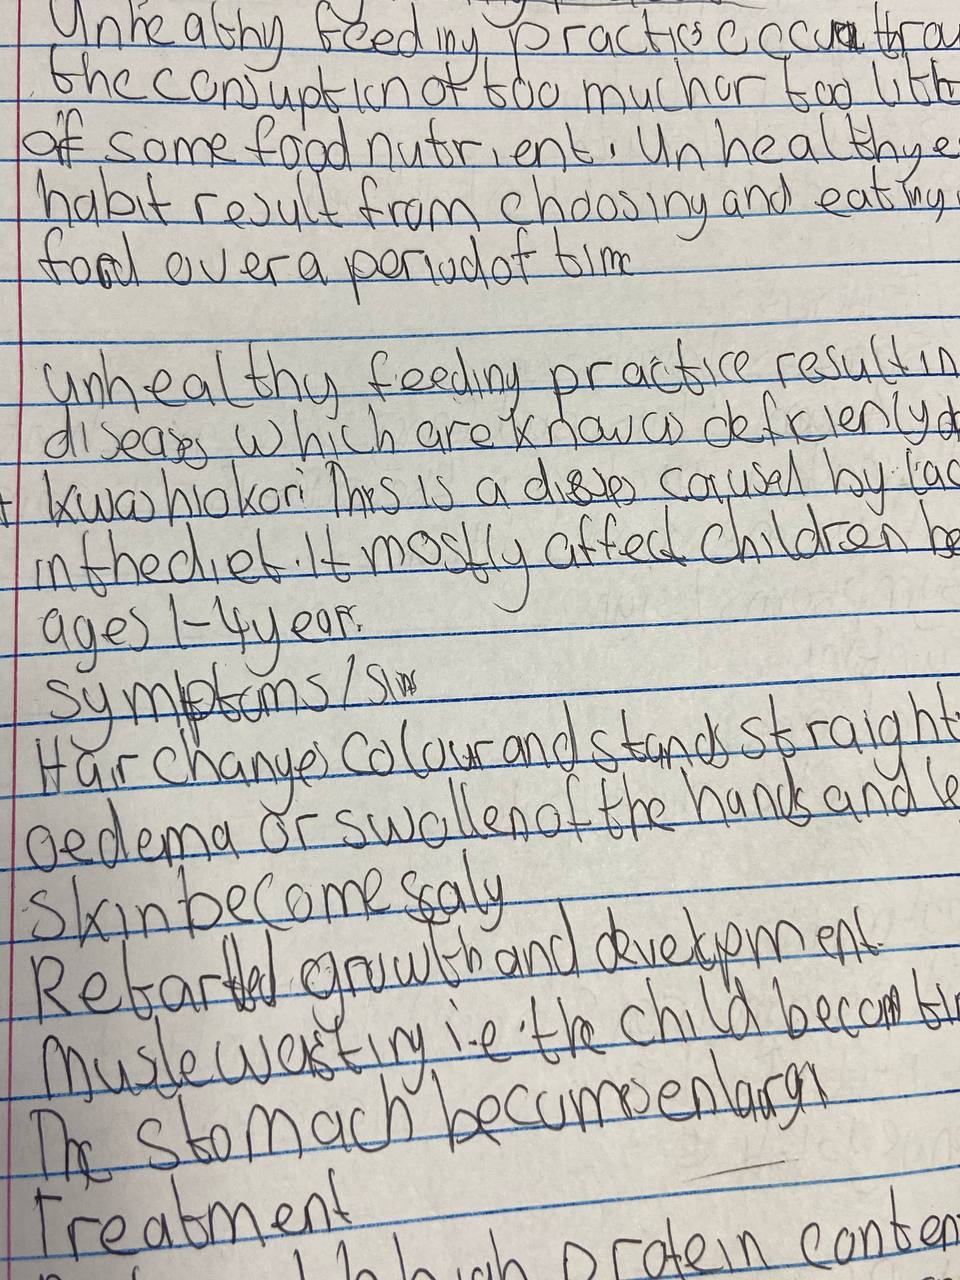 Unhealthy feeding practice occur thro
the consuption of too much or too litt
of some food nutrient. Unhealthy e
habit result from choosing and eating
food over a period of time
unhealthy feeding practice result in
diseases which are known as deficiency d
kwashiokori This is a diseases caused by lac
in the diet. It mostly affect children be
ages 1-4 year.
symptoms /
Hair changes Colour and stands straight
oedema or swollen of the hands and le
skin become scaly
Retarted growth and development
Muscle wasting i.e the child becom
The stomach becomes enlarg
Treatment
high protein conten